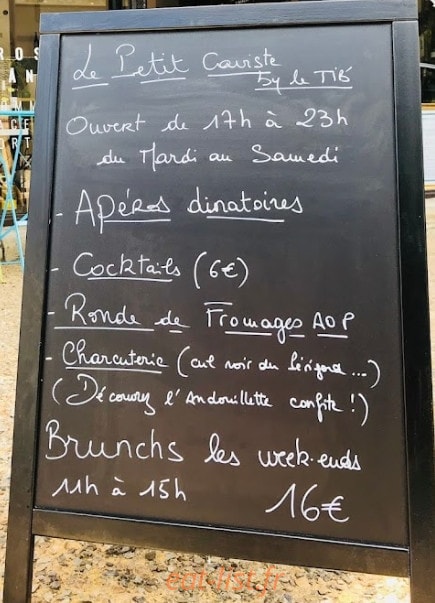 Le Petit Caviste
by le TIB
Ouvert de 17h à 23h
du Mardi au Samedi
- Apéros dinatoires
- Cocktails (6€)
- Ronde de Fromages AOP
- Charcuterie (cul noir du Périgord...)
(Découvrez l'Andouillette confite !)
Brunchs les week-ends
11h à 15h 16€
eat-list.fr